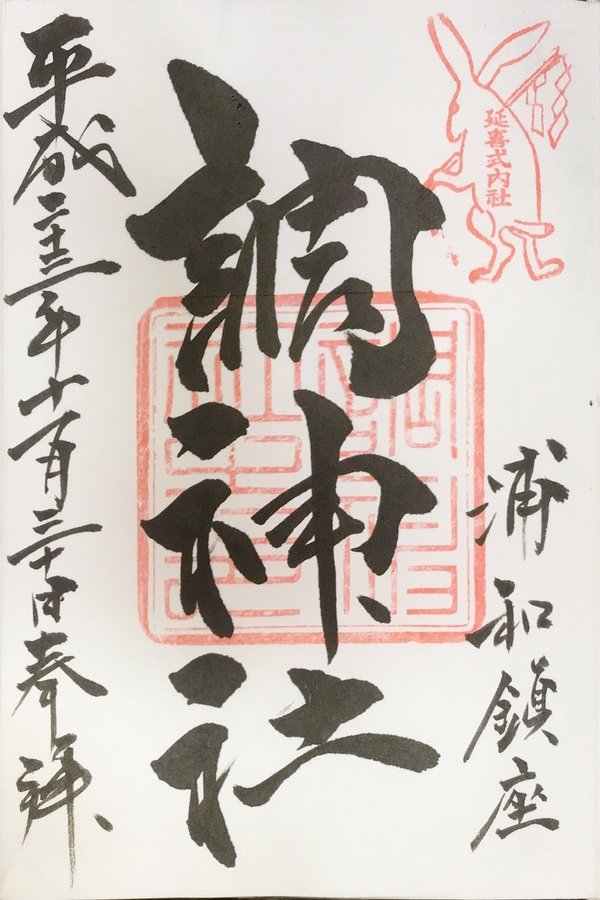 延喜式内社
浦和鎮座
調神社
平成二十三年十一月三十日奉拝